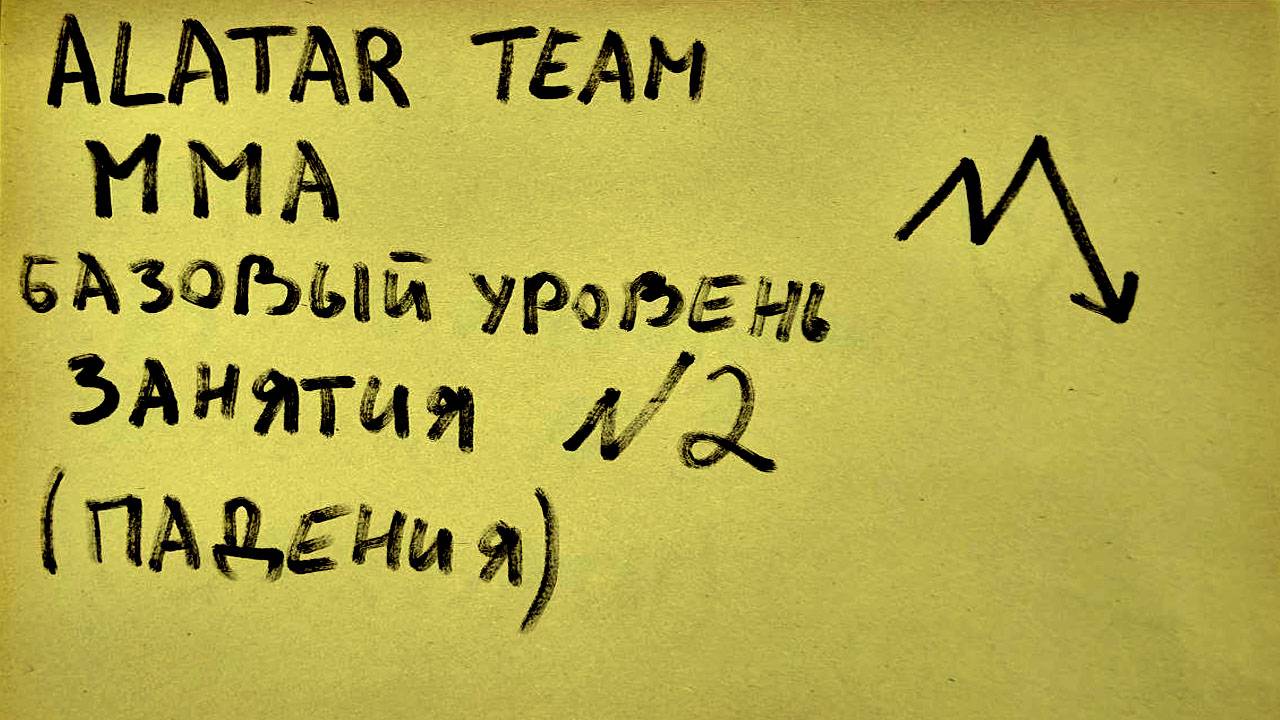 ALATAR TEAM
MMA
БАЗОВЫЙ УРОВЕНЬ
ЗАНЯТИЯ №2
(ПАДЕНИЯ)